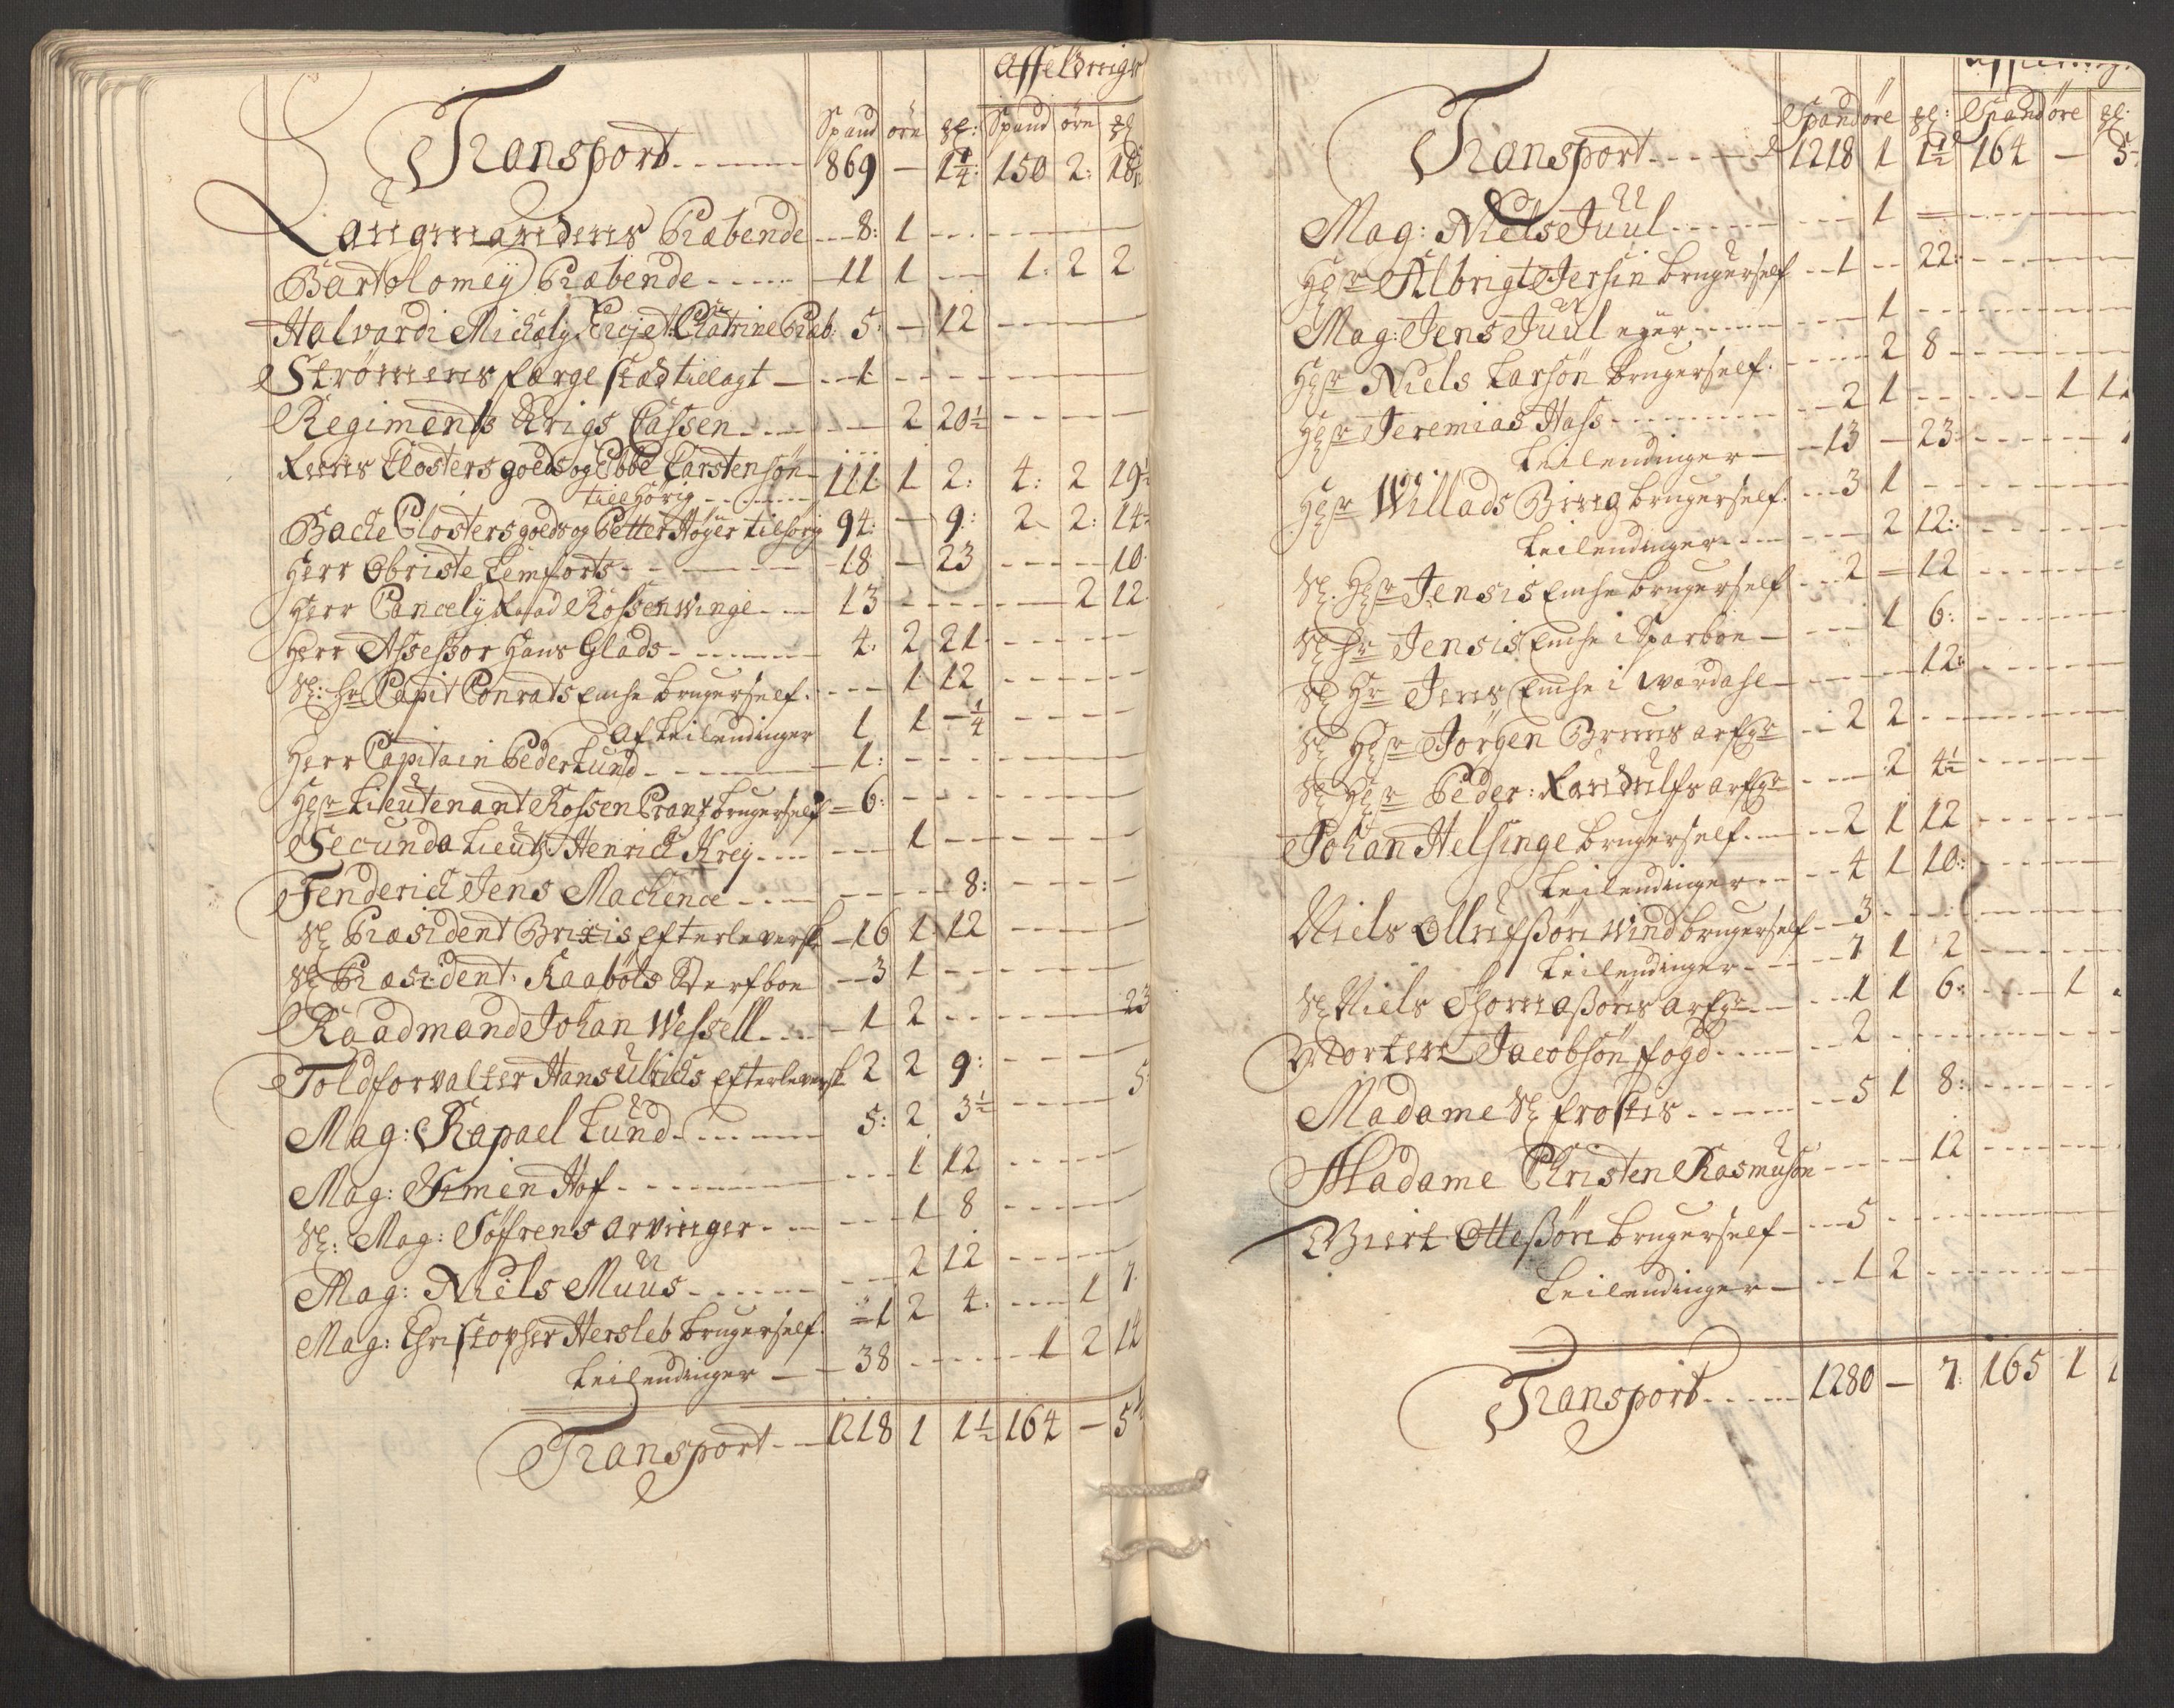 Affeldning
Spand öre gl: Spand öre gl
Transport 869 — 1 1/4 150 2: 18
Laugmandens Præbende 8: 1
Bartolomeÿ Præbende 11 1 — 1: 2 2
Halvardi Michaly Præb: 5: — 12
Strömens færge stæd tillagt 1
Regiments Krigs Cassen — 2 20½
Reens Closters goeds og Ebbe Carstensön
tillhörig 111 1 2: 4: 2 19
Bache Closters goeds og Petter Höyer tilhörig 94: — 9: 2 2: 14
Herr Obriste Lemforts 18 — 23 10
Herr Cancely Raad Rossenwinge 13 2 12
Herr Assessor Hans Glads 4: 2 21
Sl: Hr Capit Conrats Enche brugerself 1 12
Af Leilendinger 1 1 — 1/4
Herr Capitain Peder Lund 1:
Hr Lieutenant Rossen Crantz brugerself 6:
Secunda Lieut: Henrich Kreÿ 1
Fenderich Jens Machence 8:
Sl Præsident Brixis efterleversk 16 1 12
Sl Præsident Kaaböls Sterfboe 3 1
Raadmand Johan Wessell 1 2 23
Toldforvalter Hans Ulrichs efterleversk 2 2 9:
Mag: Rapael Lund 5: 2 3½ 5
Mag: Simen Hof 1 12
Sl: Mag: Söfrens arvinger 1 8
Mag: Niels Muus 2 12
Mag: Christopher Hersleb brugerself 1 2 4: 1 7
Leilendinger 38 1 2 14
Transport 1218 1 1½ 164 — 5
Spand öre gl: Spand öre gl:
Transport 1218 1 1½ 164 — 5
Mag: Niels Juul 1
Hr Albrigt Jersin brugerself 1 — 22:
Mag: Jens Juul eger 1
Hr Niels Larsön brugerself 2 8
Hr Jeremias Hass 2 1 1
Leilendinger 13 — 23
Hr Willads Bring brugerself 3 1
Leilendinger 2 12:
Sl. Hr Jensis Enche brugerself 2 = 12
Sl Hr Jensis Enche i Sparboe 1 6:
Sl Hr Jens Enche i wærdahl 12:
Sl Hr Jörgen Bruns arfge 2 2
Sl Hr Peder: Randulfs arfge 2 4½
Johan Helsinge brugerself 2 1 12
Leilendinger 4 1 10:
Niels Ollufssön Wind brugerself 3
Leilendinger 7 1 2
Sl Niels Thomassöns arfge 1 1 6: 1
Morten Jacobsön fogd 2
Madame Sl frostis 5 1 8:
Madame Christen Rasmusön 12
Biert Ottessön brugerself 5
Leilendinger 1 2
Transport 1280 — 7: 165 1 1